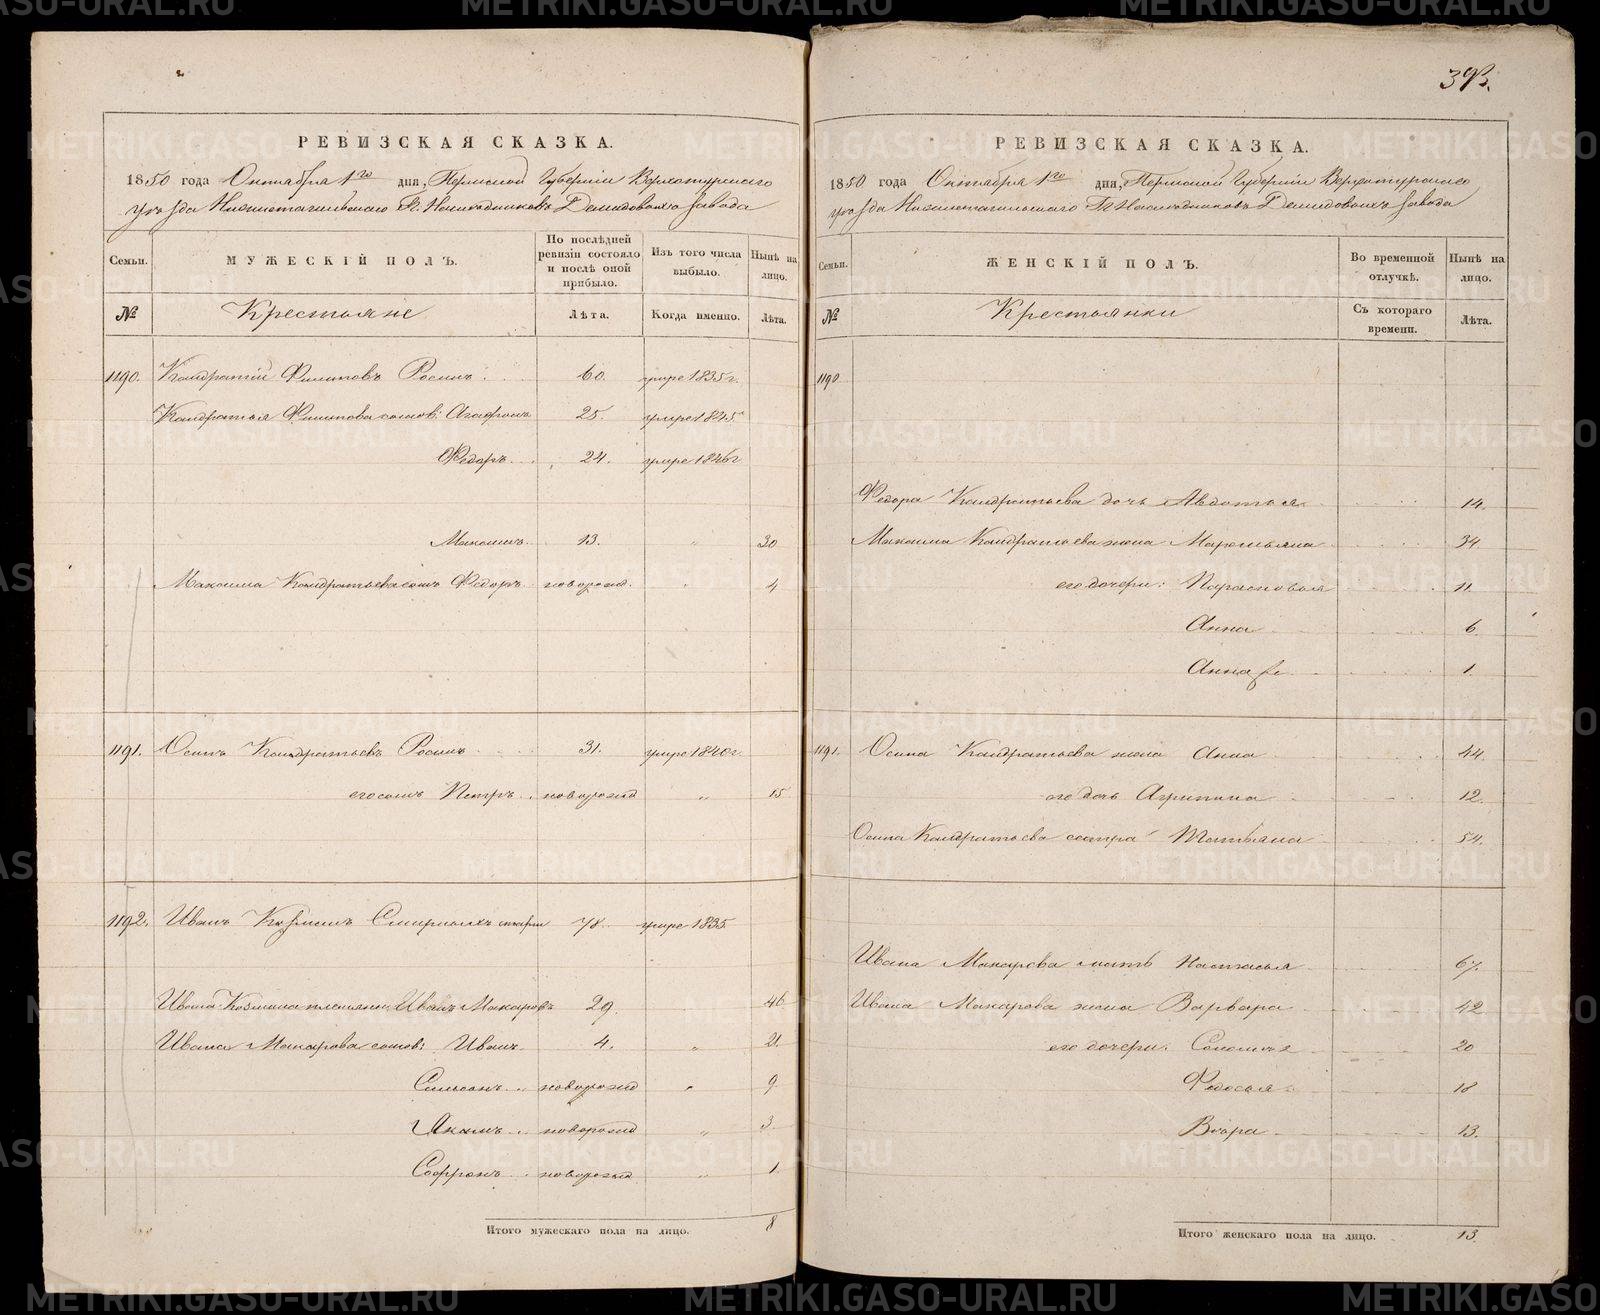 393.
РЕВИЗСКАЯ СКАЗКА.
1850 года Октября 1го дня, Пермской Губернiи Верхотурскаго
уѣзда Нижнетагильскаго Гг. Наслѣдниковъ Демидовыхъ завода
Семьи.
МУЖЕСКIЙ ПОЛЪ.
По послѣдней ревизiи состояло и послѣ оной прибыло.
Изъ того числа выбыло.
Нынѣ на лицо.
№
Крестьяне
Лѣта.
Когда именно.
Лѣта.
1190. Кондратiй Филиповъ Росинъ 60. умре 1835 г.
Кондратья Филипова сынов: Агафонъ 25. умре 1845
Федоръ 24. умре 1846 г
Максимъ 13. " 30
Максима Кондратьева сынъ Федоръ новорожд. " 4
1191. Осипъ Кондратьевъ Росинъ 31. умре 1840 г.
его сынъ Петръ новорожд " 15
1192. Иванъ Козминъ Смирныхъ 78. умре 1835
Ивана Козмина племянн: Иванъ Макаровъ 29. 46
Ивана Макарова сынов: Иванъ 4. " 21.
Сильванъ новорожд " 9
Якимъ новорожд " 3
Софронъ новорожд " 1
Итого мужескаго пола на лицо. 8
РЕВИЗСКАЯ СКАЗКА.
1850 года Октября 1го дня, Пермской Губернiи Верхотурскаго
уѣзда Нижнетагильскаго Гг. Наслѣдниковъ Демидовыхъ завода
Семьи.
ЖЕНСКIЙ ПОЛЪ.
Во временной отлучкѣ.
Нынѣ на лицо.
№
Крестьянки
Съ котораго времени.
Лѣта.
1190
Федора Кондратьева дочь Авдотья 14.
Максима Кондратьева жена Маремьяна 34.
его дочери: Парасковья 11.
Анна 6.
Анна 1.
1191. Осипа Кондратьева жена Анна 44.
его дочь Агрипина 12.
Осипа Кондратьева сестра Татьяна 54.
Ивана Макарова мать Настасья 67.
Ивана Макарова жена Варвара 42
его дочери: 20
Федосья 18
Вѣра 13.
Итого женскаго пола на лицо. 13.
METRIKI.GASO-URAL.RU